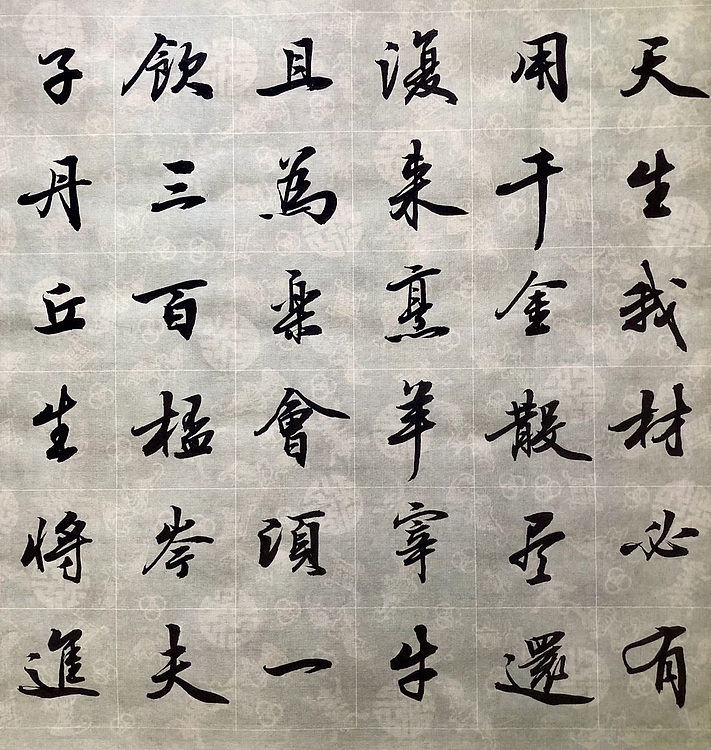 天生我材必有
用千金散尽還
復来烹羊宰牛
且為楽會須一
飲三百杯岑夫
子丹丘生将進